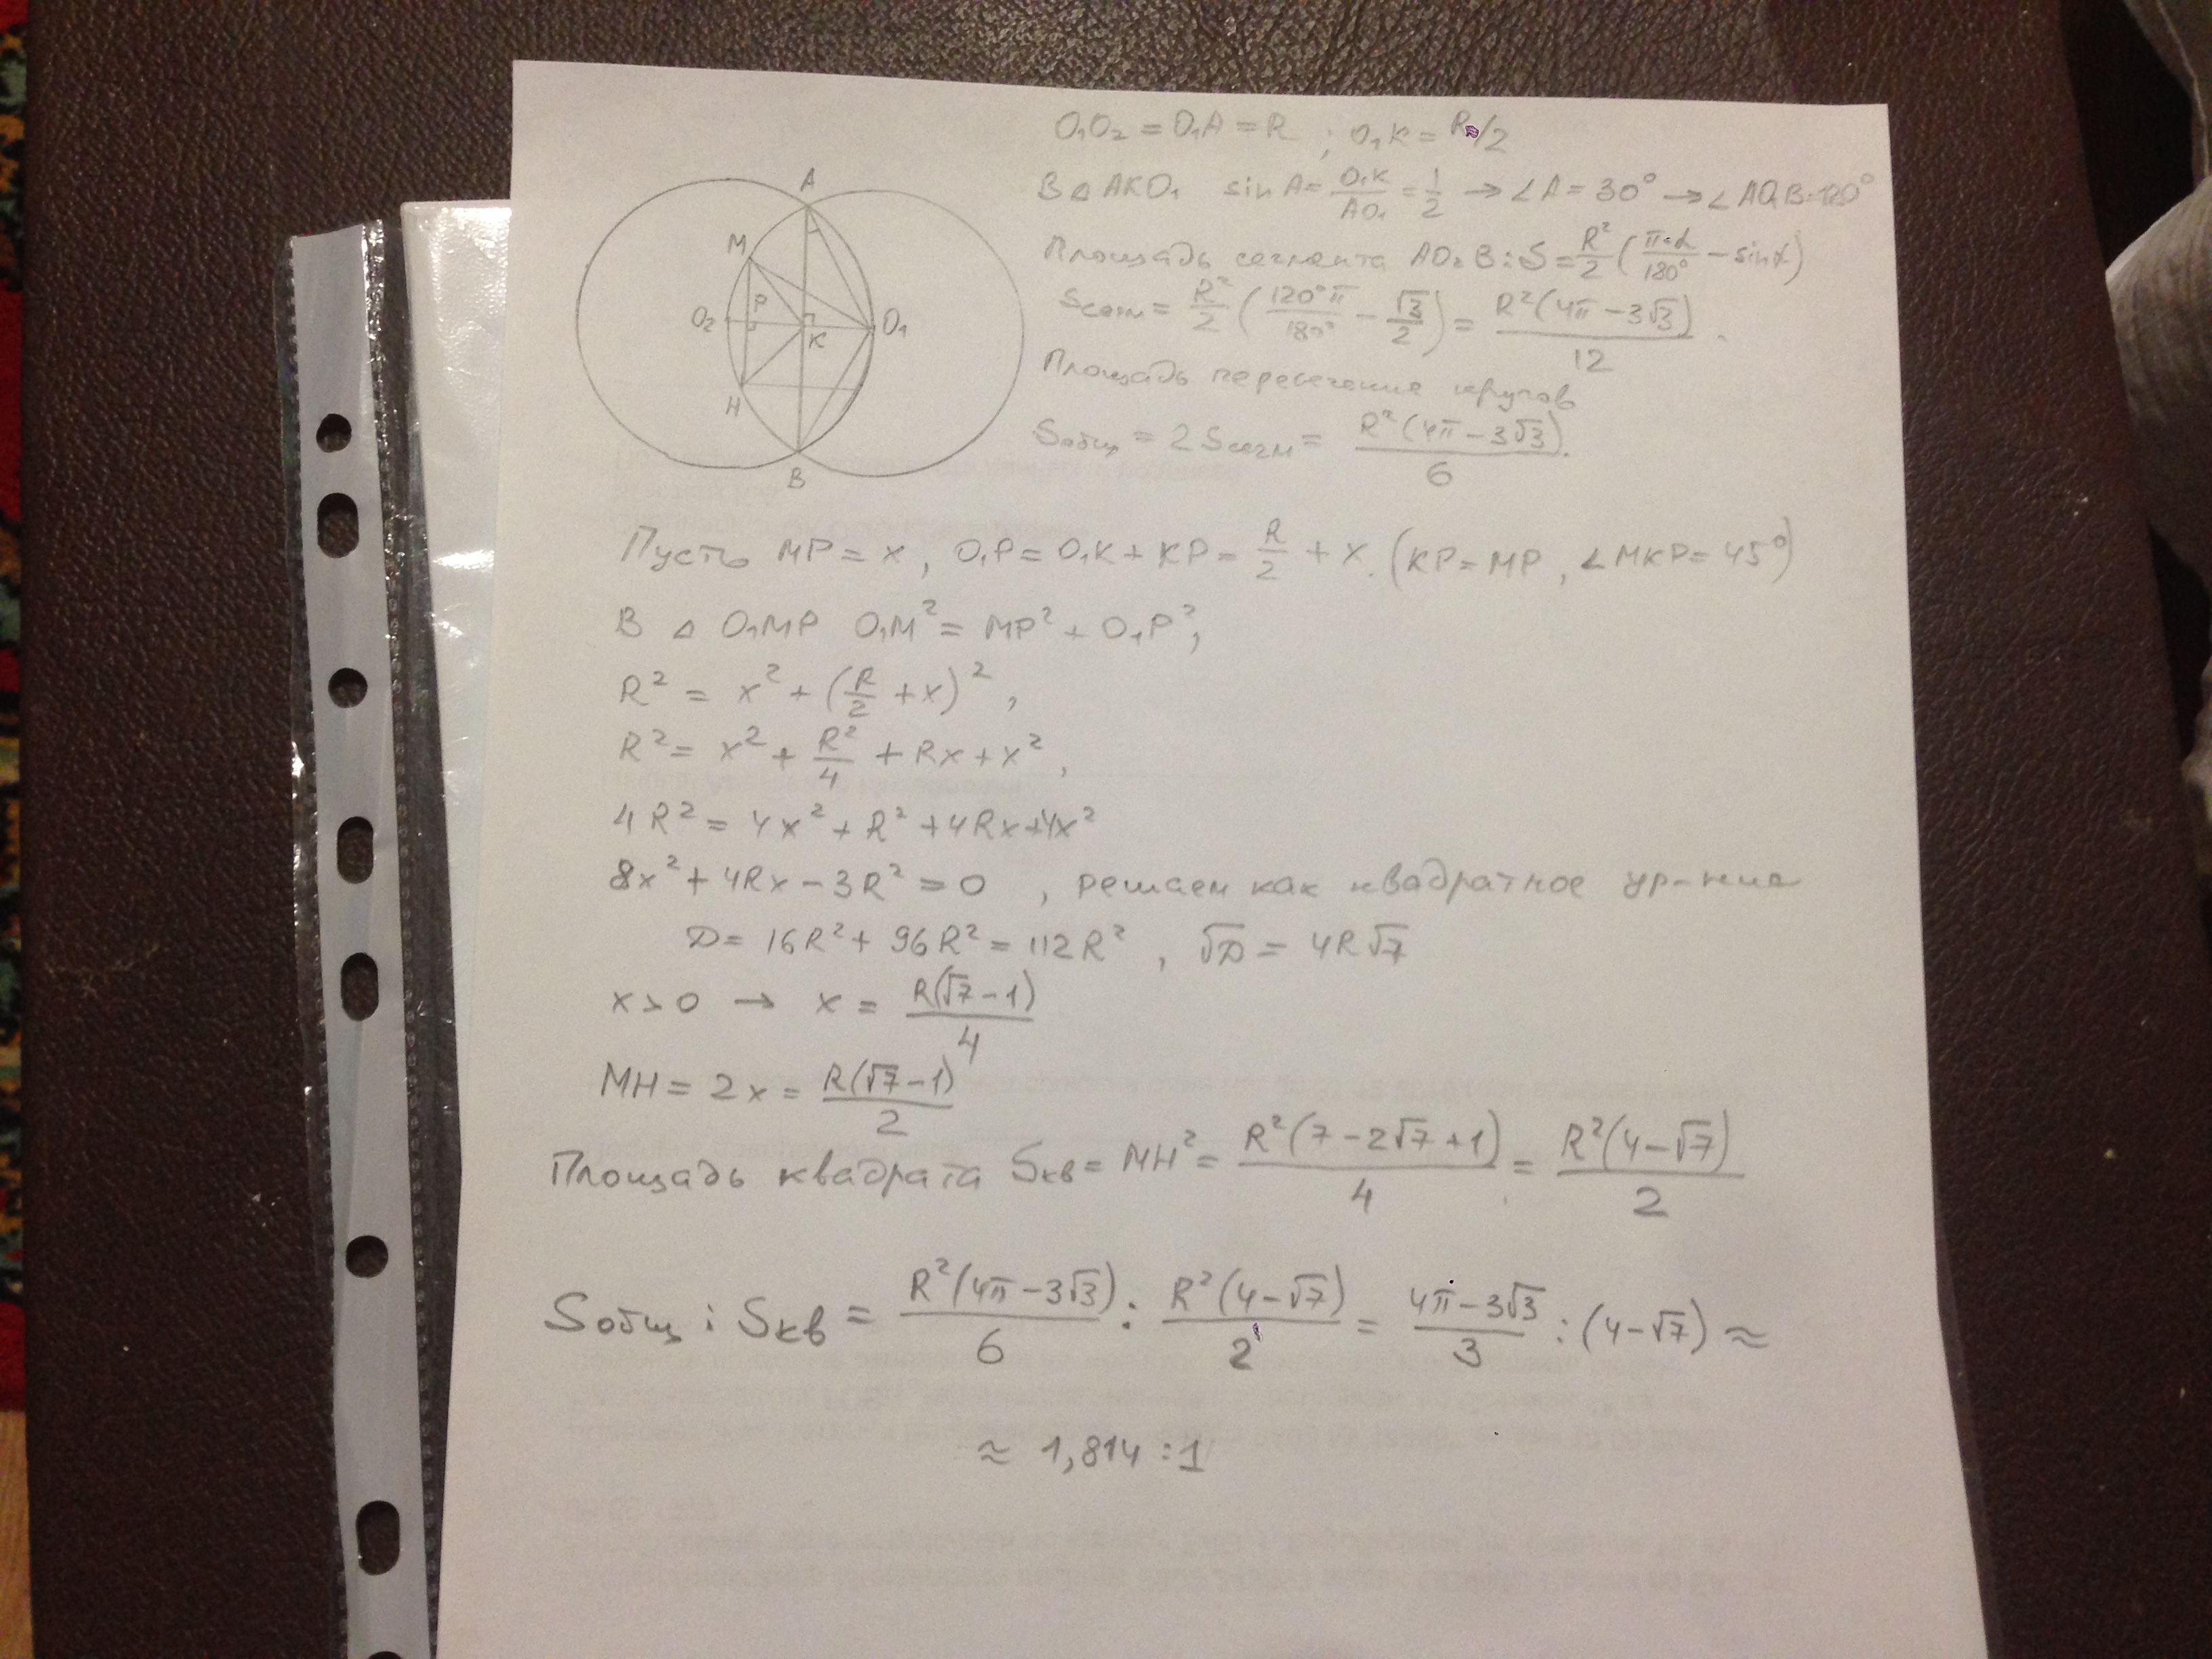 O₁O₂ = O₁A = R ; O₁K = R/2
В △ AKO₁ sin A = O₁K/AO₁ = 1/2 → ∠A = 30° → ∠AO₁B = 120°
Площадь сегмента AO₂B : S = R²/2 (π·α/180° − sin α)
Sсегм = R²/2 (120°π/180° − √3/2) = R²(4π − 3√3)/12 .
Площадь пересечение кругов
Sобщ = 2 Sсегм = R²(4π − 3√3)/6 .
A
M
P
O₂
O₁
K
H
B
Пусть MP = x , O₁P = O₁K + KP = R/2 + x . (KP = MP , ∠MKP = 45°)
В △ O₁MP O₁M² = MP² + O₁P² ,
R² = x² + (R/2 + x)² ,
R² = x² + R²/4 + Rx + x² ,
4R² = 4x² + R² + 4Rx + 4x²
8x² + 4Rx − 3R² = 0 , решаем как квадратное ур-ние
D = 16R² + 96R² = 112R² , √D = 4R√7
x > 0 → x = R(√7 − 1)/4
MH = 2x = R(√7 − 1)/2
Площадь квадрата Sкв = MH² = R²(7 − 2√7 + 1)/4 = R²(4 − √7)/2
Sобщ : Sкв = R²(4π − 3√3)/6 : R²(4 − √7)/2 = 4π − 3√3/3 : (4 − √7) ≈
≈ 1,814 : 1